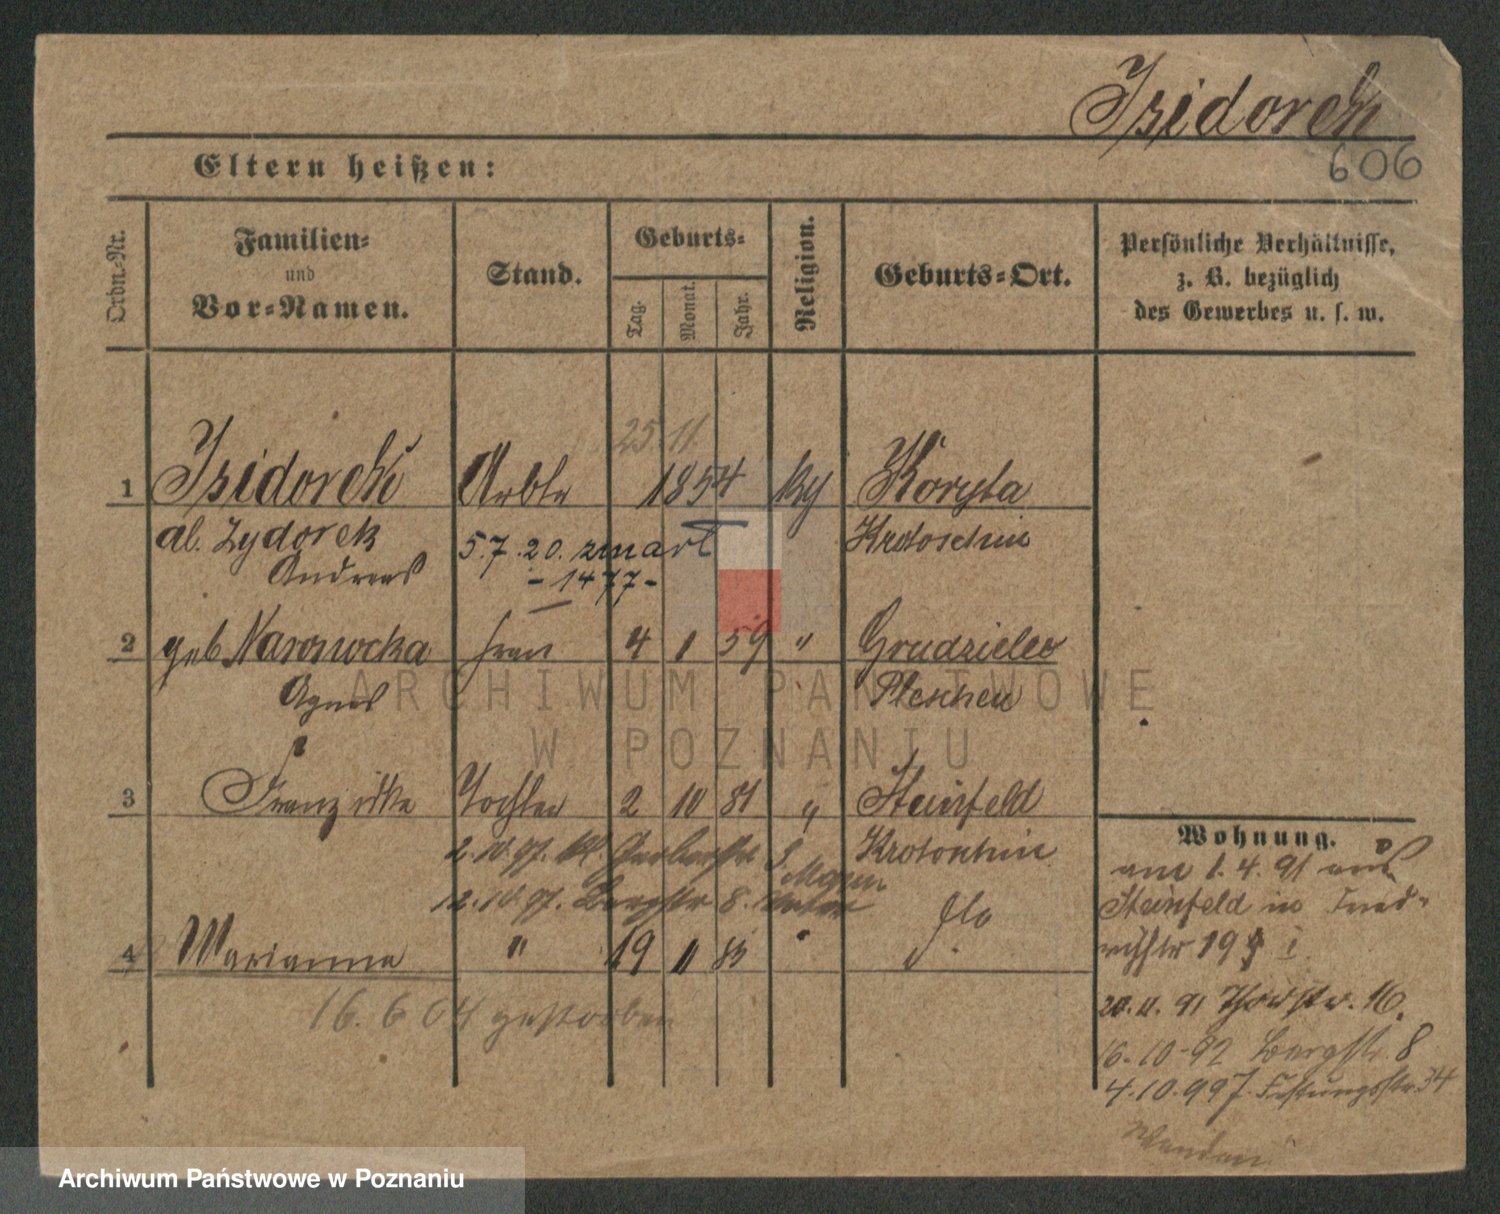 Izidorek
606
Eltern heißen:
Ordn.-Nr.
Familien-
und
Vor-Namen.
Stand.
Geburts-
Tag.
Monat.
Jahr.
Religion.
Geburts-Ort.
Persönliche Verhältnisse,
z. B. bezüglich
des Gewerbes u. s. w.
25. 11
1 Izidorek Arbtr 1854 Koryta
al. Zydorek Krotoschin
Andreas
5.7.20. zmarł
- 1477 -
2 geb Naronocka Frau 4 1 59 " Grudzielec
Agnes Pleschen
3 Franziska Tochter 2 10 81 " Steinfeld
Krotoschin
2.10.97.
12.10.97. Bergstr 8.
4 Marianna " 19 11 dto
16. 6 04 gestorben
Wohnung.
am 1. 4. 91 aus
Steinfeld in Fried-
richstr 19 I
91 Thorstr. 16.
16.10-92 Bergstr. 8
4.10.997. Festungsstr. 34
Wenden
ARCHIWUM PAŃSTWOWE
W POZNANIU
Archiwum Państwowe w Poznaniu